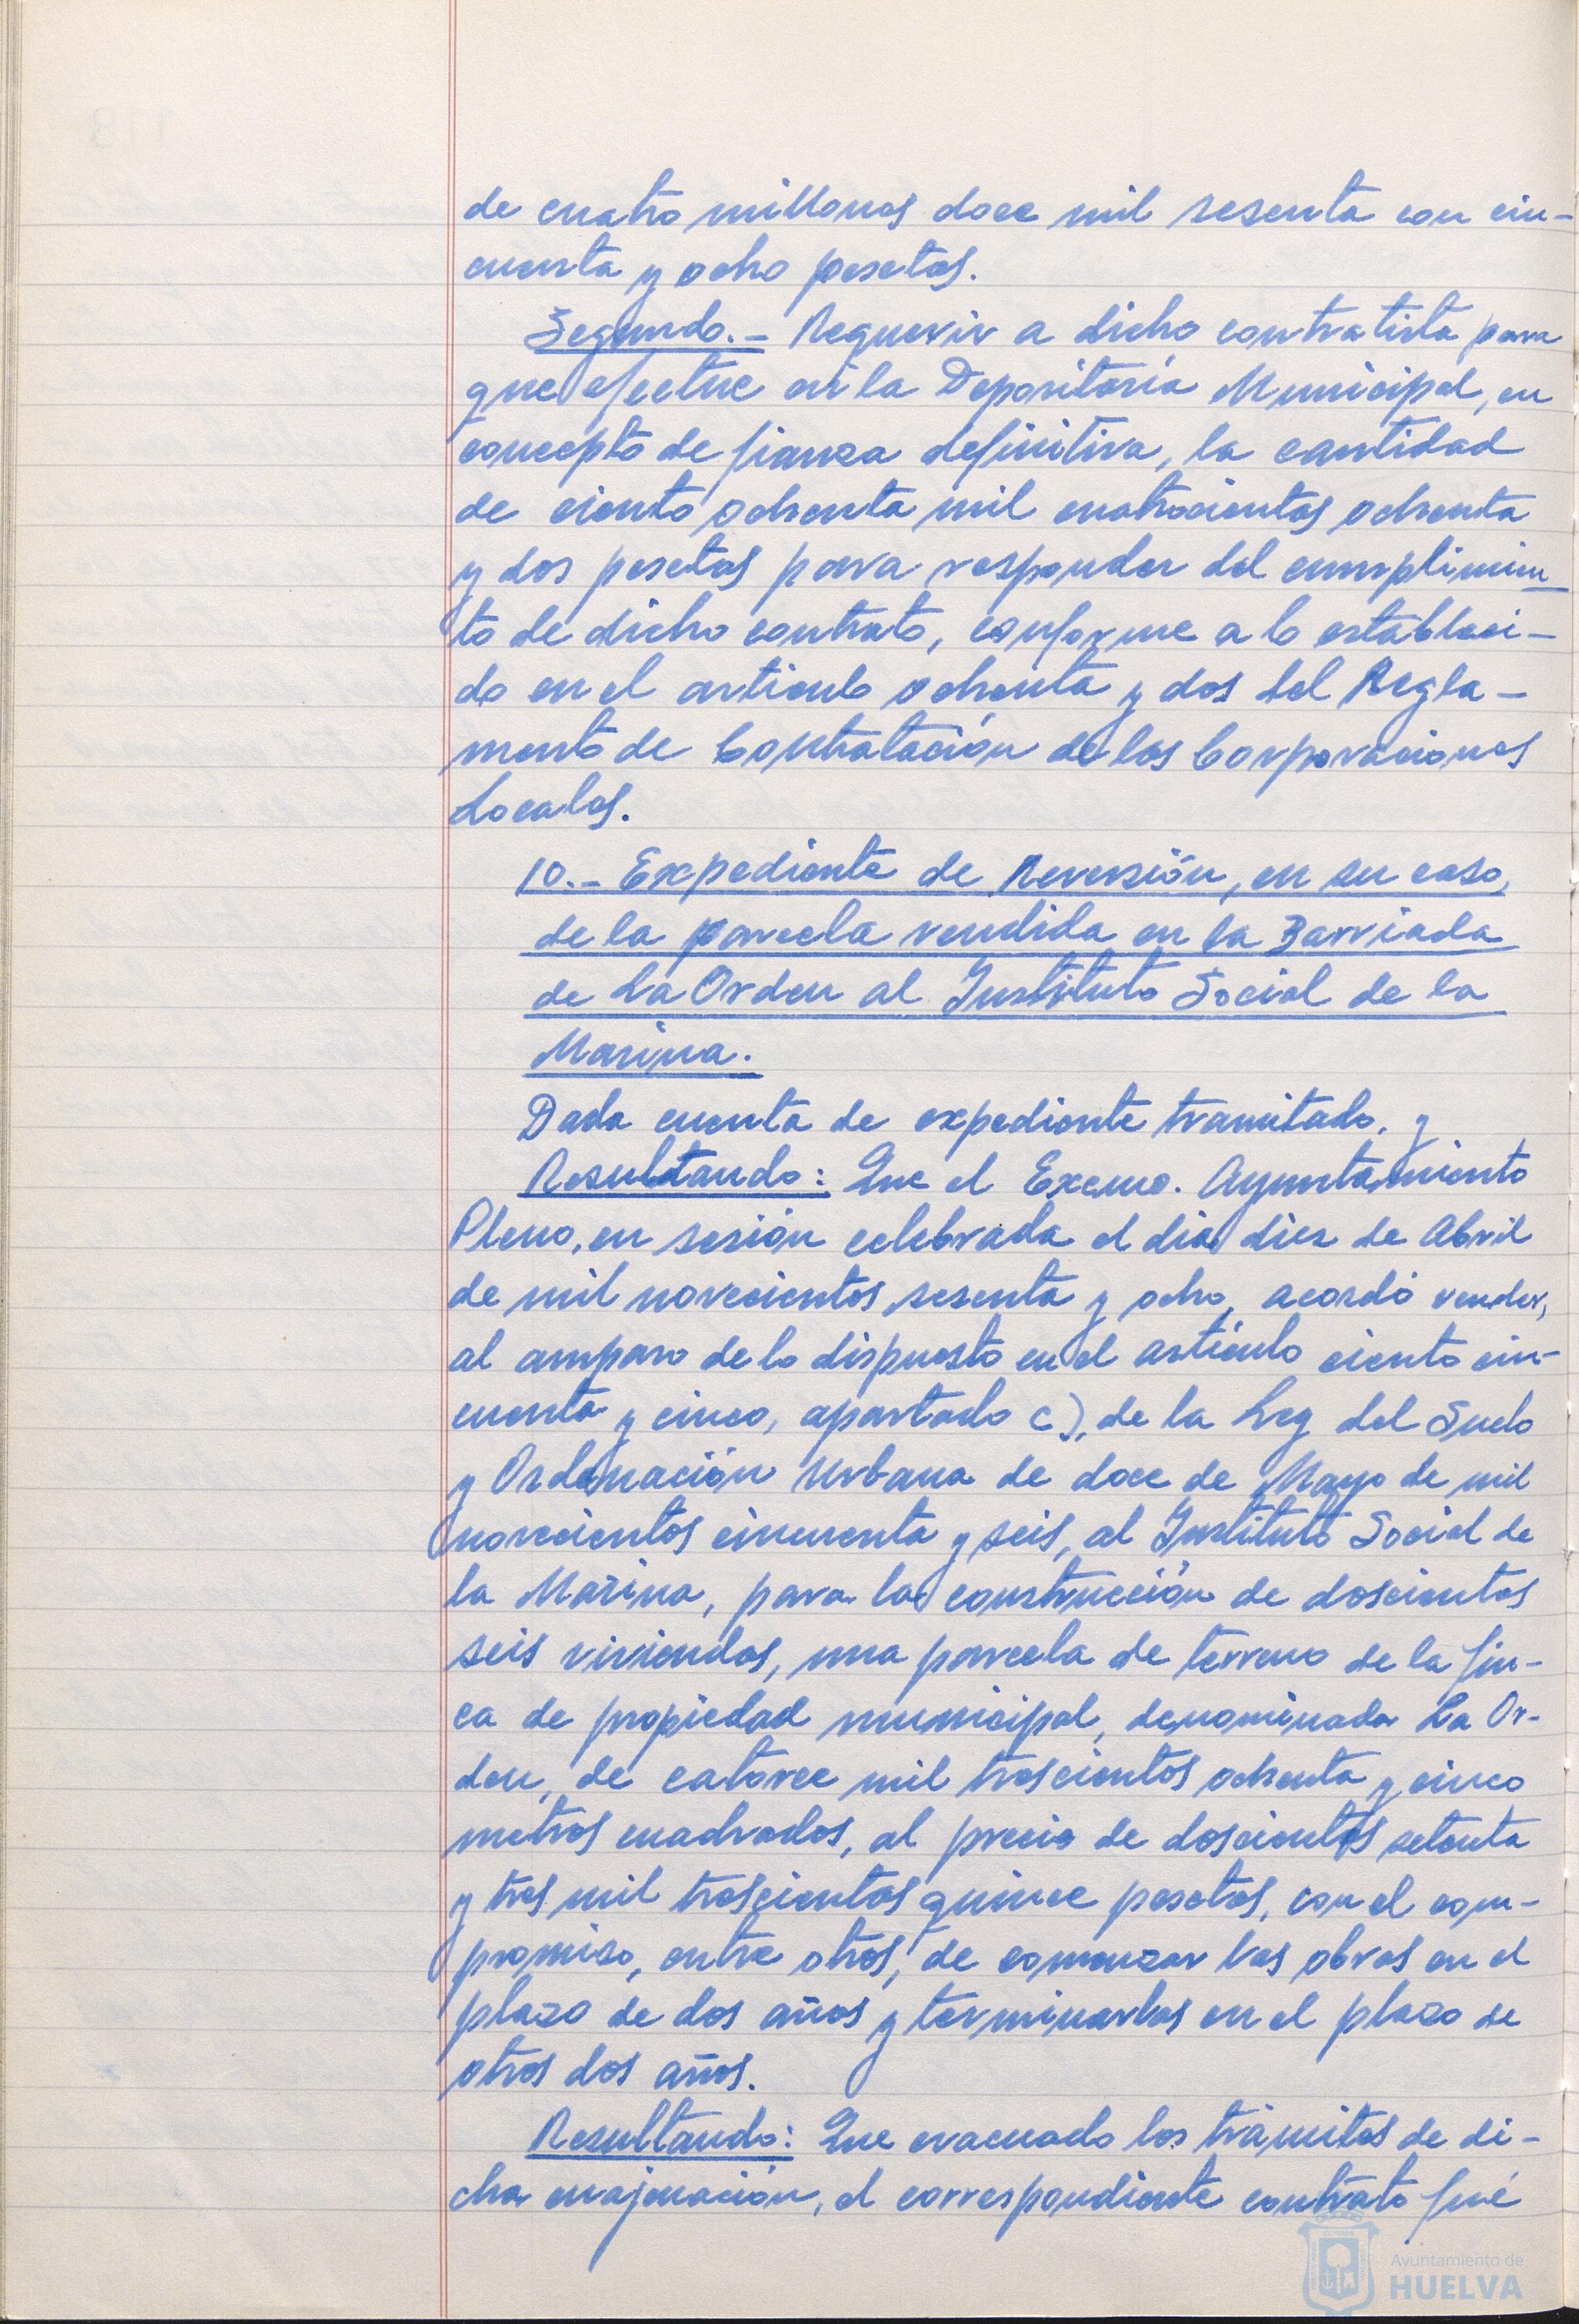 de cuatro millones doce mil sesenta con cin-
cuenta y ocho pesetas.
Segundo.- Requerir a dicho contratista para
que efectue en la Depositaría Municipal, en
concepto de fianza definitiva, la cantidad
de ciento ochenta mil cuatrocientas ochenta
y dos pesetas para responder del cumplimien_
to de dicho contrato, conforme a lo estableci-
do en el articulo ochenta y dos del Regla-
mento de Contratación de las Corporaciones
Locales.
10.- Expediente de Reversión, en su caso,
de la parcela vendida en la Barriada
de La Orden al Instituto Social de la
Marina.
Dada cuenta de expediente tramitado, y
Resultando: Que el Excmo. Ayuntamiento
Pleno, en sesión celebrada el dia diez de Abril
de mil novecientos sesenta y ocho, acordó vender,
al amparo de lo dispuesto en el artículo ciento cin-
cuenta y cinco, apartado c), de la Ley del Suelo
y Ordenación Urbana de doce de Mayo de mil
novecientos cincuenta y seis, al Instituto Social de
la Marina, para la construcción de doscientas
seis viviendas, una parcela de terreno de la fin-
ca de propiedad municipal, denominada La Or-
den, de catorce mil trescientos ochenta y cinco
metros cuadrados, al precio de doscientas setenta
y tres mil trescientas quince pesetas, con el com-
promiso, entre otros, de comenzar las obras en el
plazo de dos años y terminarlas en el plazo de
otros dos años.
Resultando: Que evacuado los trámites de di-
cha enajenación, el correspondiente contrato fué
Ayuntamiento de
HUELVA